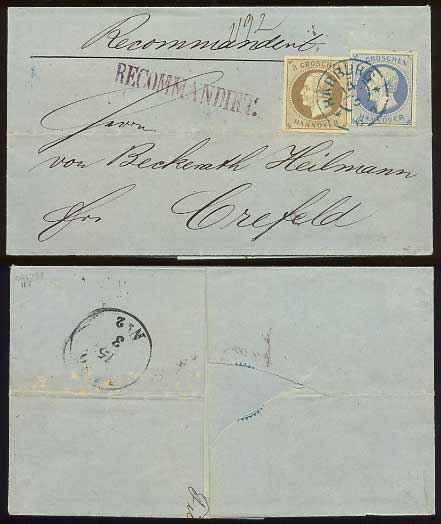 1192
Recommandirt.
RECOMMANDIRT.
3 GROSCHEN
HANNOVER
HARBURG
GROSCHEN
HANNOVER
Herrn
von Beckerath Heilmann
Crefeld
N 2
3
15